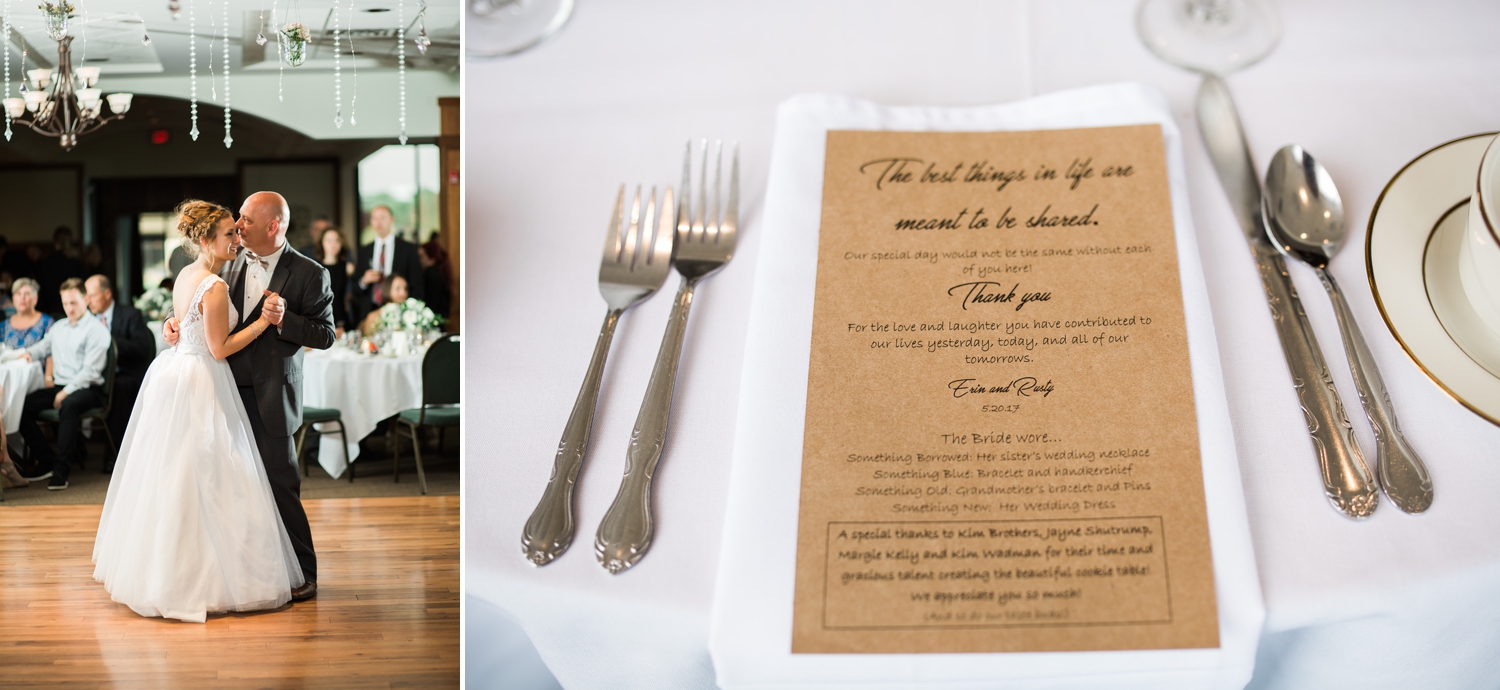 The best things in life are
meant to be shared.
Our special day would not be the same without each
of you here!
Thank you
For the love and laughter you have contributed to
our lives yesterday, today, and all of our
tomorrows.
Erin and Rusty
5.20.17
The Bride wore...
Something Borrowed: Her sister's wedding necklace
Something Blue: Bracelet and handkerchief
Something Old: Grandmother's bracelet and Pins
Something New: Her Wedding Dress
A special thanks to Kim Brothers, Jayne Shutrump,
Margie Kelly and Kim Wadman for their time and
gracious talent creating the beautiful cookie table!
We appreciate you so much!